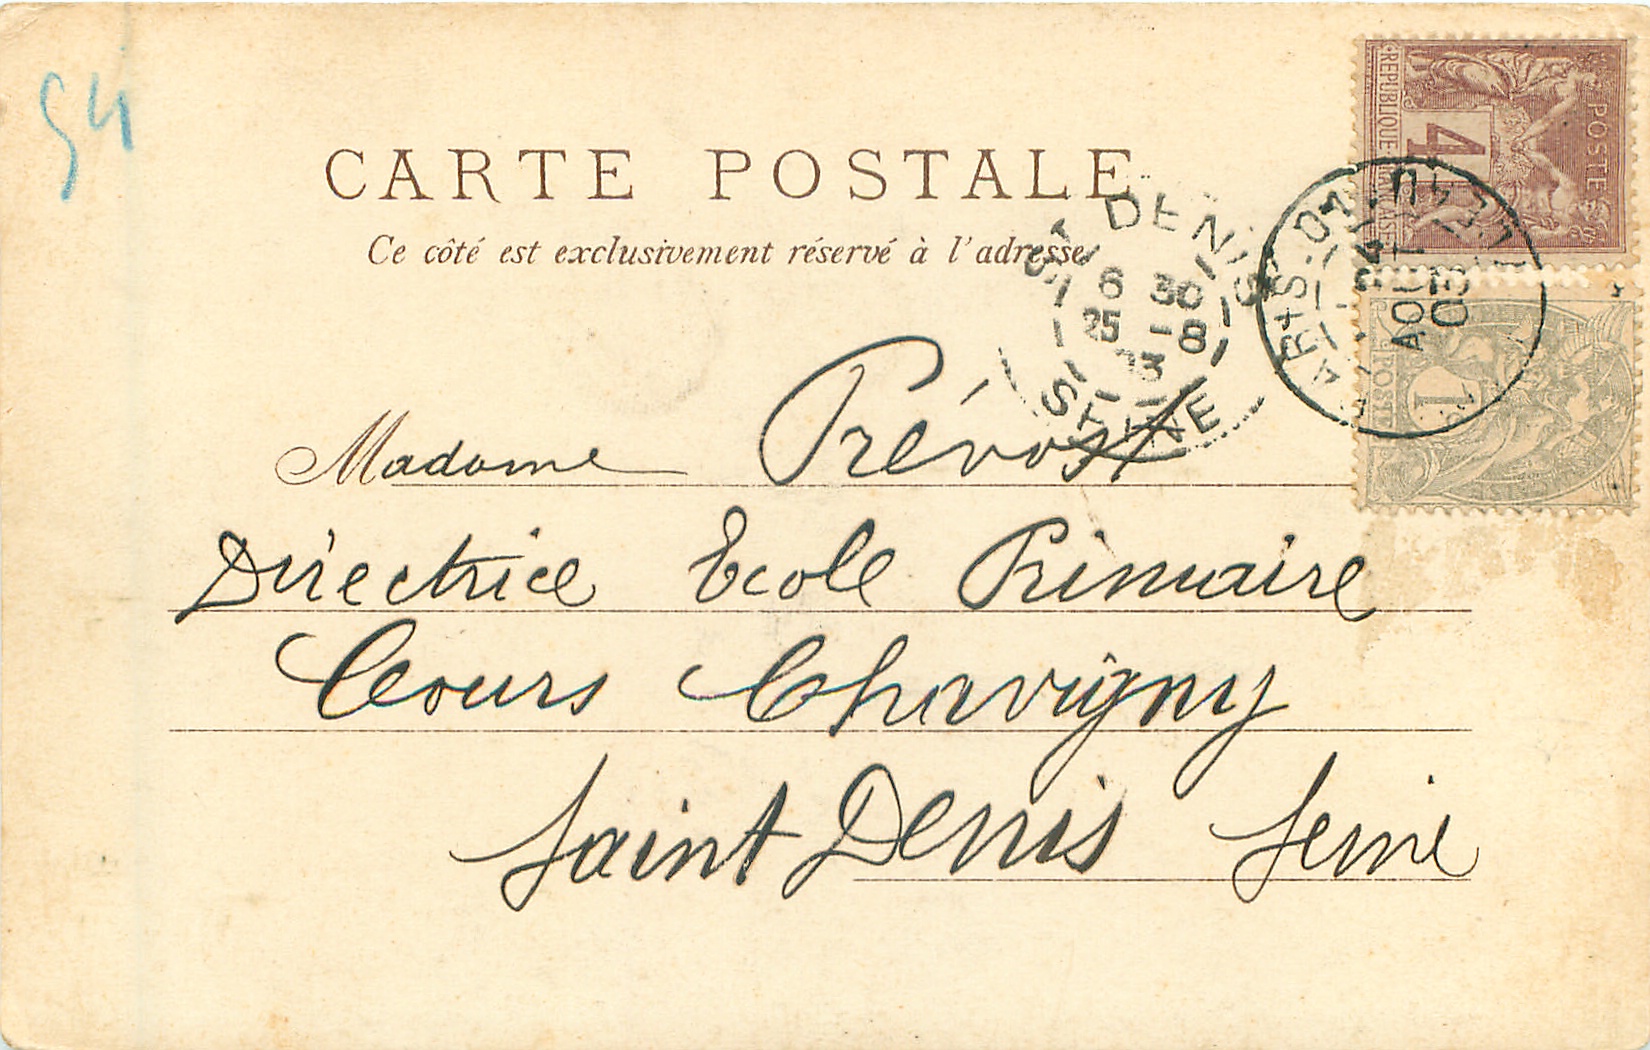 54
CARTE POSTALE
Ce côté est exclusivement réservé à l'adresse
POSTES
REPUBLIQUE FRANCAISE
4
ST DENIS
6 30
25 -8
03
SEINE
PARIS
24
AOUT
03
POSTES
1
Madame Prévost
Directrice Ecole Primaire
Cours Chavigny
Saint Denis Seine